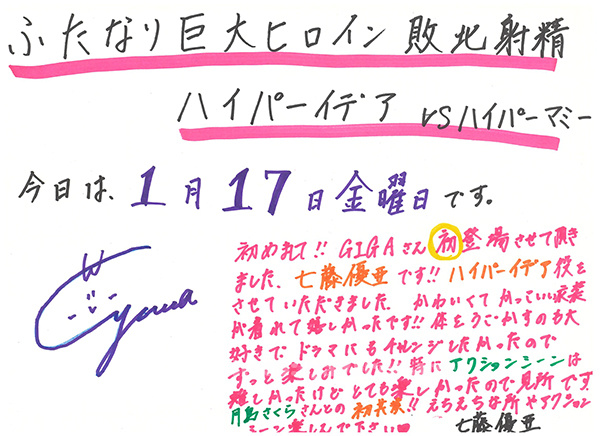 ふたなり巨大ヒロイン敗北射精
ハイパーイデア vsハイパーマミー
今日は、1月17日金曜日です。
初めまして!! GIGAさん初登場させて頂き
ました、七藤優亜です!! ハイパーイデア役を
させていただきました かわいくてかっこいい衣装
が着れて嬉しかったです!! 体をうごかすのも大
好きで ドラマにもチャレンジしたかったので
ずっと楽しみでした!! 特にアクションシーンは
難しかったけど とても楽しかったので見所です
月島さくらさんとの 初共演!! えちえちな所やアクション
シーン楽しんで下さい♥
七藤優亜